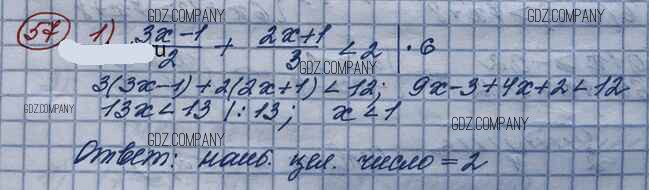 GDZ.COMPANY GDZ.COMPANY
57 1) (3x-1)/2 + (2x+1)/3 < 2 | · 6
GDZ.COMPANY GDZ.COMPANY
3(3x-1)+2(2x+1)<12; 9x-3+4x+2<12
GDZ.COMPANY GDZ.COMPANY
13x<13 |:13; x<1
GDZ.COMPANY GDZ.COMPANY
Ответ: наиб. цел. число = 2